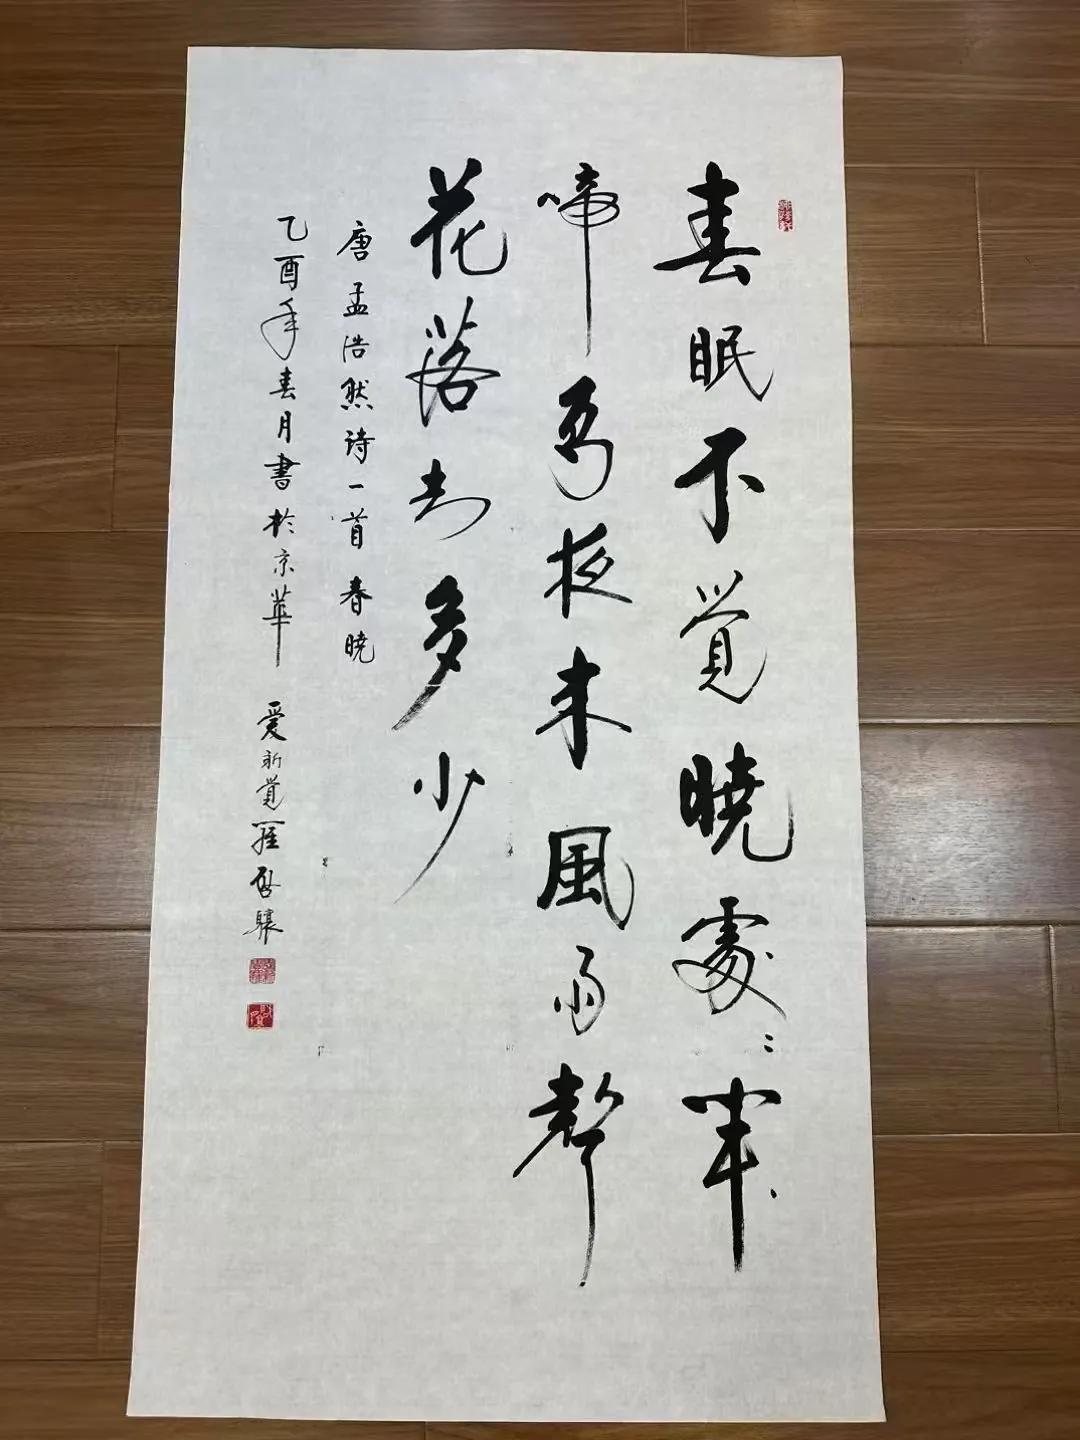 春眠不覺曉處〻聞
啼鳥夜来風雨聲
花落知多少
唐孟浩然诗一首春曉
乙酉年春月書於京華 爱新覺羅啟驤